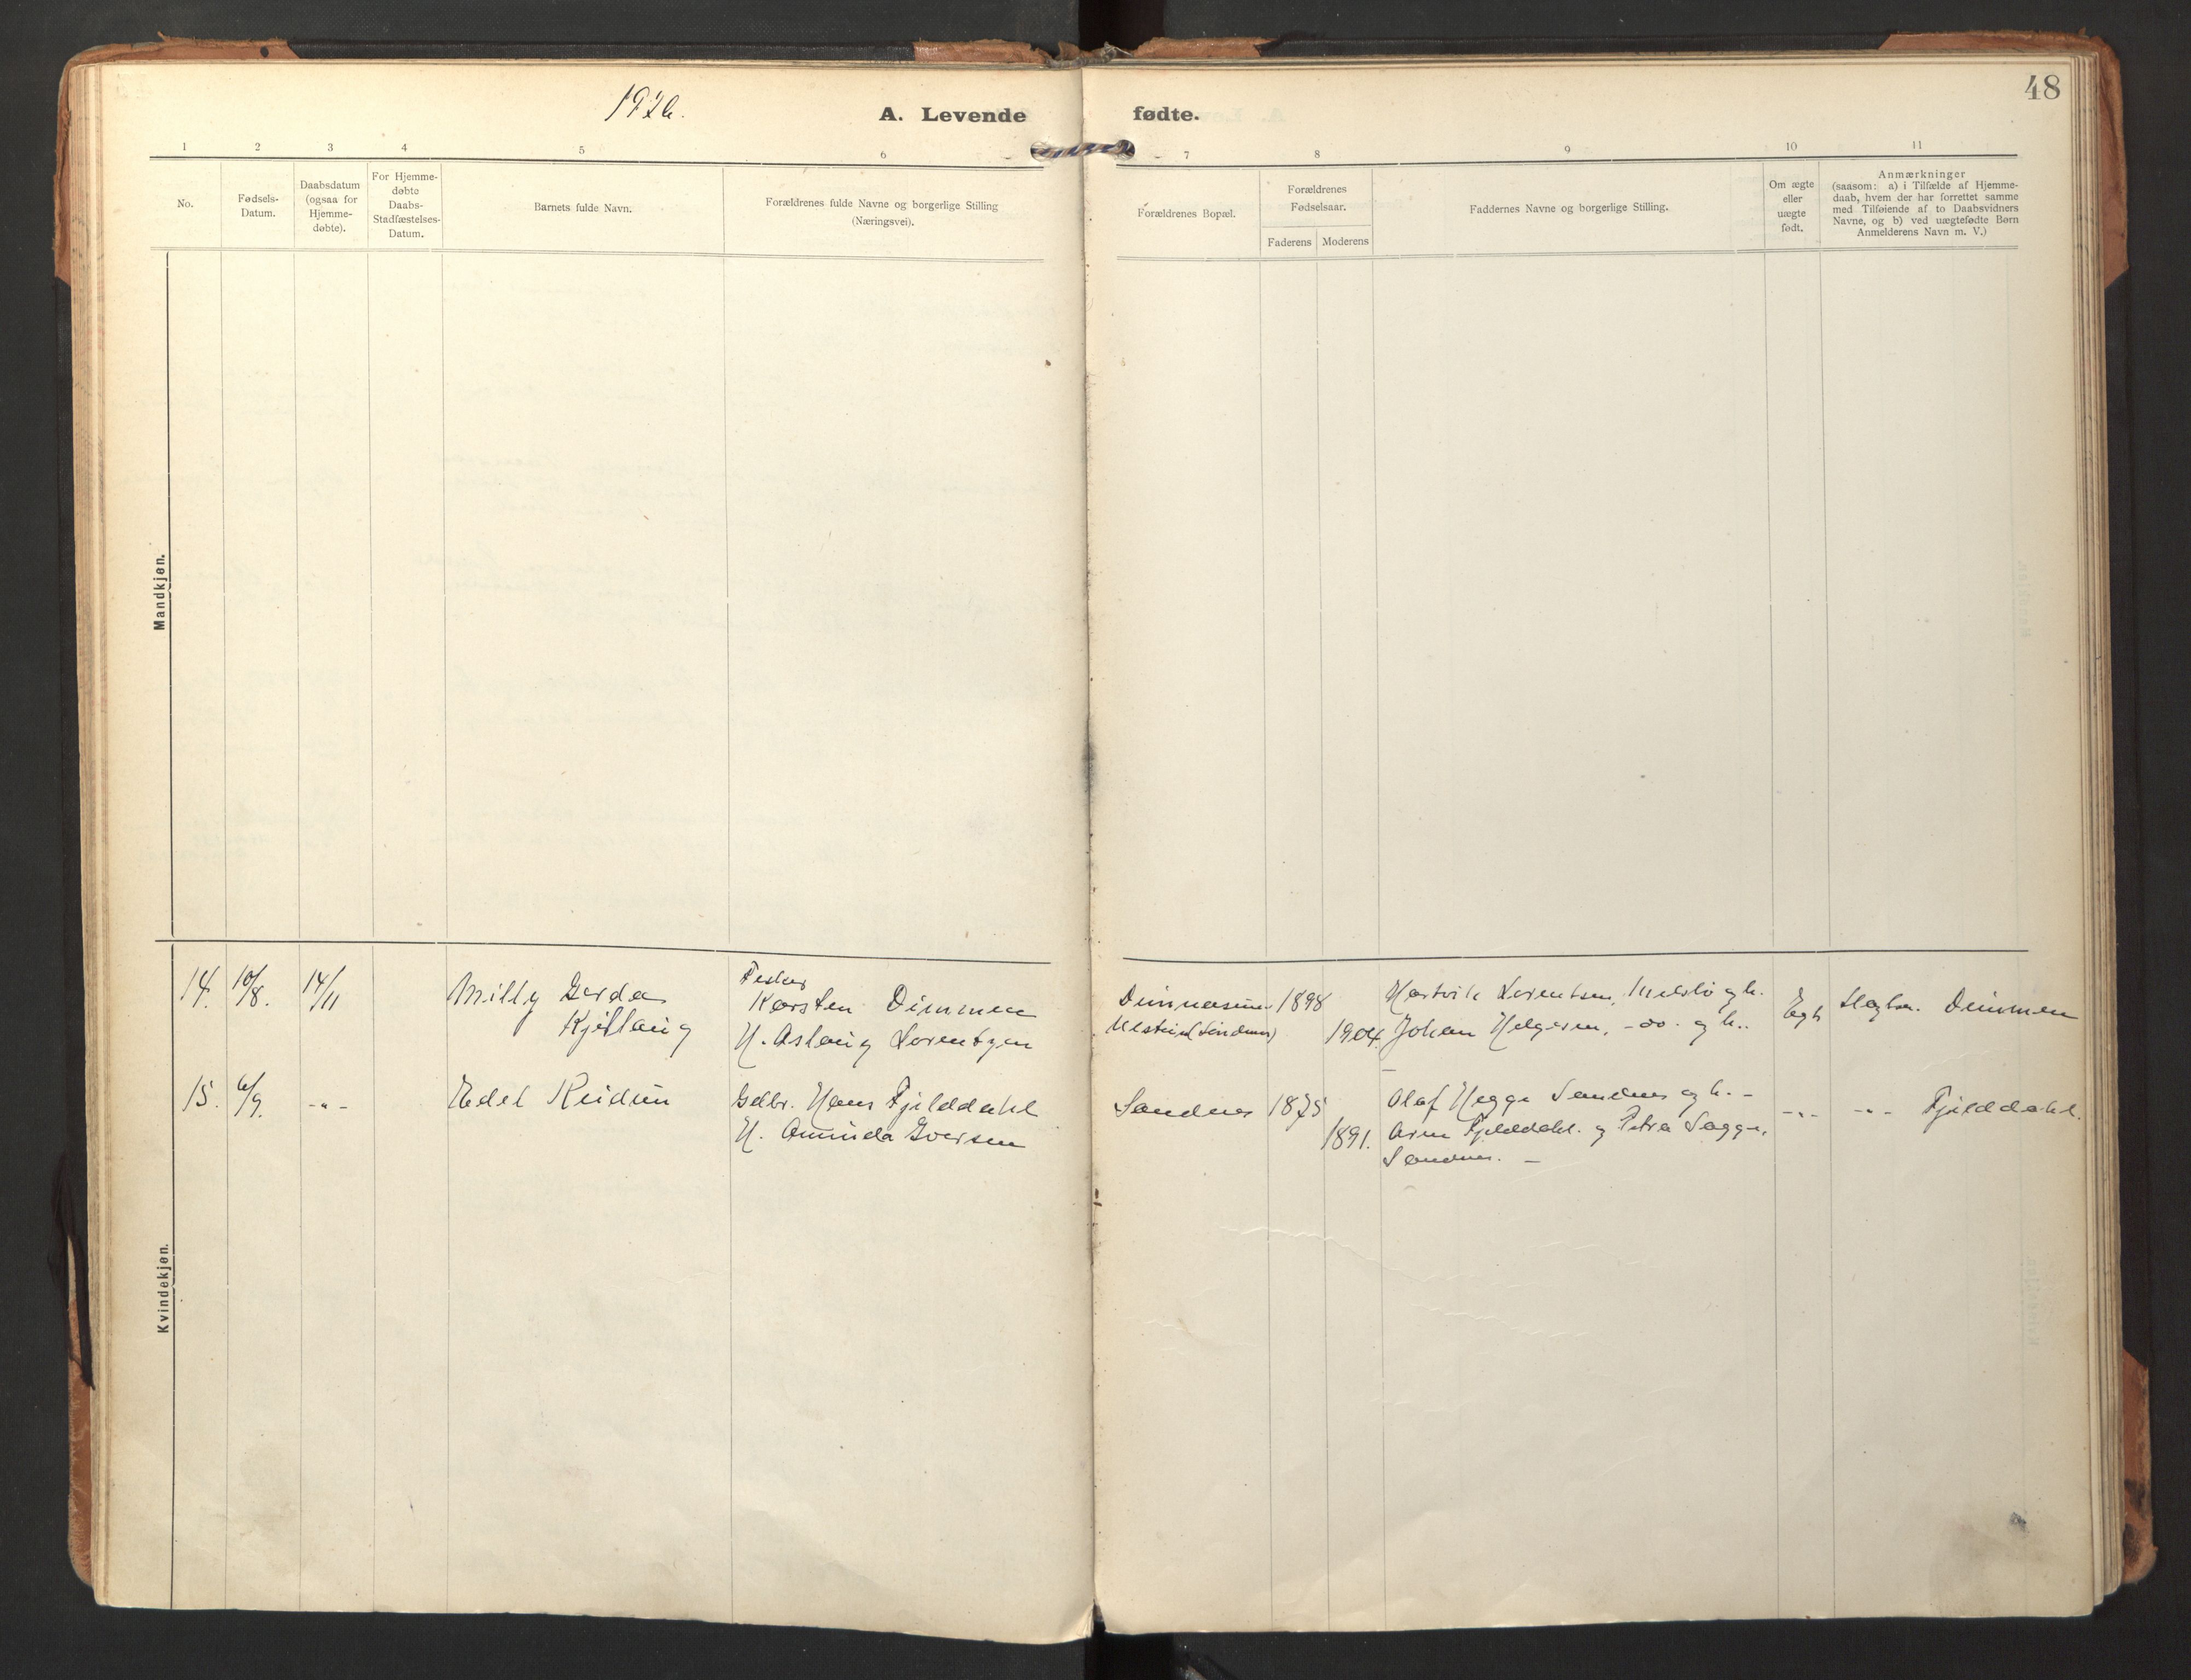 48
1926.
A. Levende fødte.
1 2 3 4 5 6 7 8 9 10 11
No.
Fødsels-
Datum.
Daabsdatum
(ogsaa for
Hjemme-
døbte).
For Hjemme-
døbte
Daabs-
Stadfæstelses-
Datum.
Barnets fulde Navn.
Forældrenes fulde Navne og borgerlige Stilling
(Næringsvei).
Forældrenes Bopæl.
Forældrenes
Fødselsaar.
Faderens Moderens
Faddernes Navne og borgerlige Stilling.
Om ægte
eller
uægte
født.
Anmærkninger
(saasom: a) i Tilfælde af Hjemme-
daab, hvem der har forrettet samme
med Tilføiende af to Daabsvidners
Navne, og b) ved uægtefødte Børn
Anmelderens Navn m. V.)
Mandkjøn.
14. 10/8. 14/11
Milly Gerda
Kjellaug
Fisker
Karsten Dimmen
H. Aslaug Lorentzen
1898
1904.
Hartvik Lorentsen, og h.
Johan Helgesen, -do- og h.
Egte Dimmen
15. 6/9. -"-
Edel Reidun
Gdbr. Hans Fjelddahl
H. Aminda Iversen
Sandnes 1875
1891.
Olaf Hegge Sandnes og h. -
Arne Fjelddahl. og Petra Sagge,
Sandnes. -
-"- -"- Fjelddahl.
Kvindekjøn.